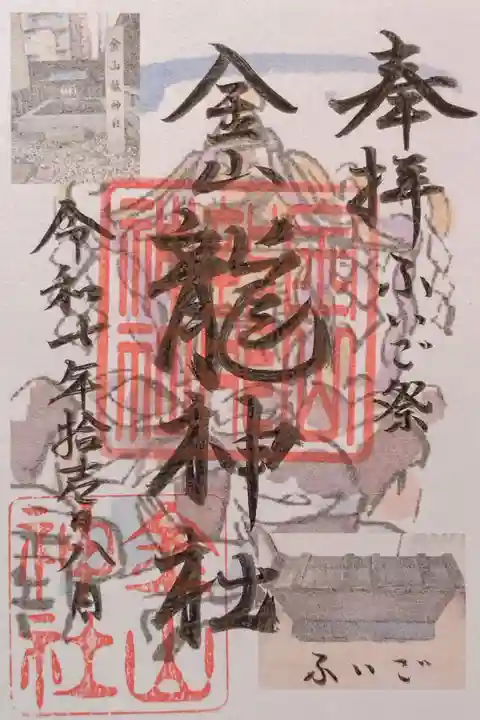 奉拝 ふいご祭
金山龍神社
令和七年拾壱月八日
金山龍神社
金山
神社
ふいご